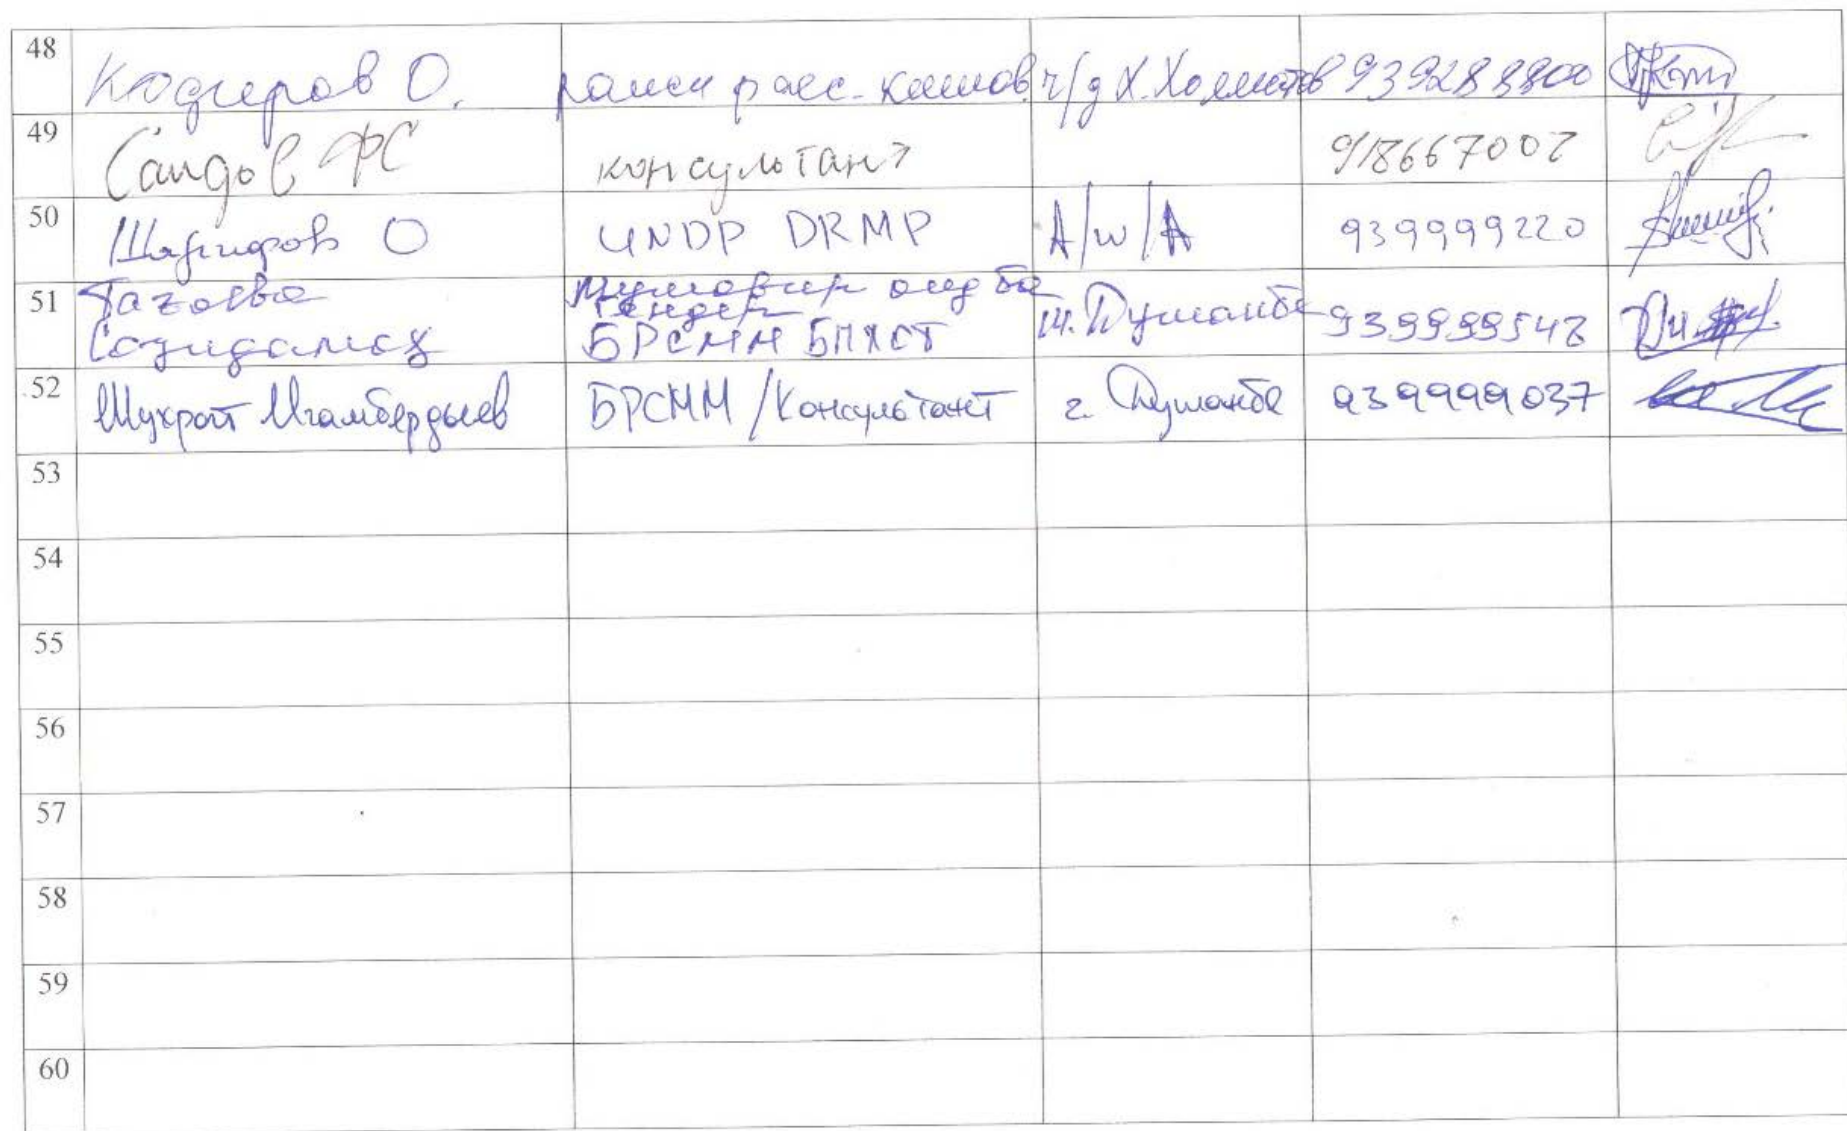 48 Кодиров О. раиси раис. кишов. ч/д Х. Холматов 939288800
49 Саидов ФС консультант 918667002
50 Шарифов О UNDP DRMP A/w/A 939999220
51 Тағоева Мушовир оид ба
Гендер
БРСММ БПХСТ ш. Душанбе 939999548
52 Шухрат Игамбердыев БРСММ/Консультант г. Душанбе 939999037
53
54
55
56
57
58
59
60